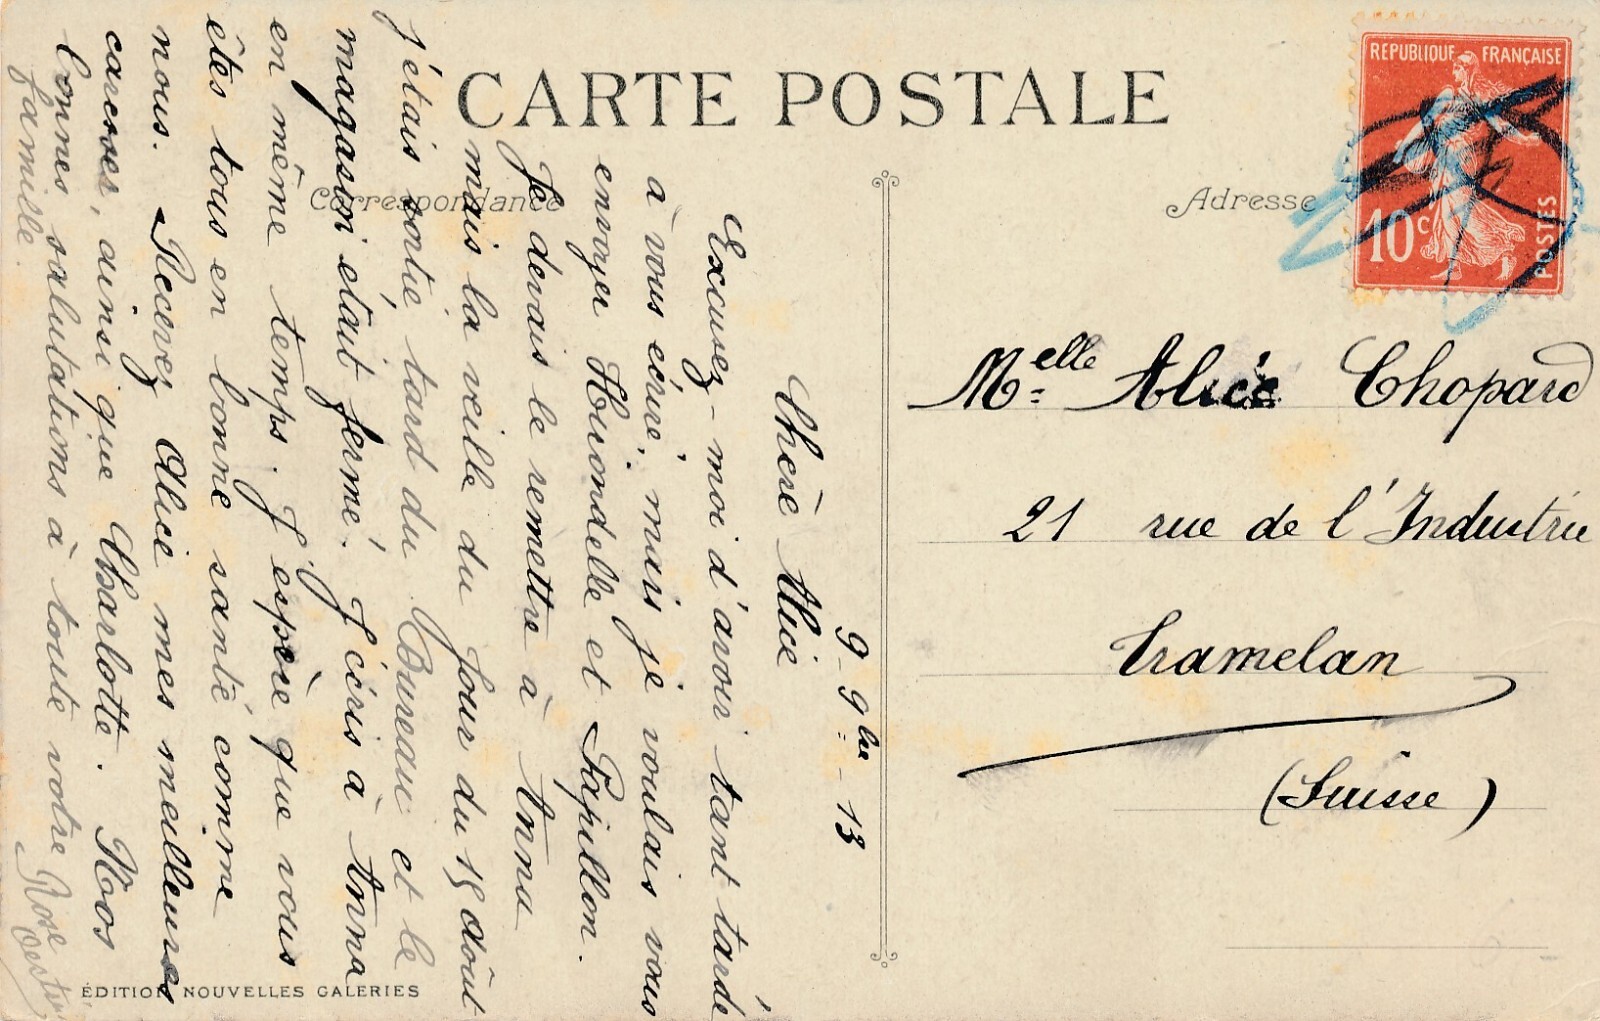 CARTE POSTALE
Correspondance
Adresse
RÉPUBLIQUE FRANÇAISE
10c
POSTES
9 - 9bre - 13
Chère Alice
Excusez-moi d'avoir tant tardé
à vous écrire, mais je voulais vous
envoyer Hirondelle et Papillon.
Je devais le remettre à Anna
mais la veille du jour du 15 août
j'étais sortie tard du Bureau et le
magasin était fermé. J'écris à Anna
en même temps. J'espère que vous
êtes tous en bonne santé comme
nous. Recevez Alice mes meilleures
caresses, ainsi que Charlotte. Nos
bonnes salutations à toute votre
famille.
Rose
Melle Alice Chopard
21 rue de l'Industrie
Tramelan
(Suisse)
ÉDITION NOUVELLES GALERIES